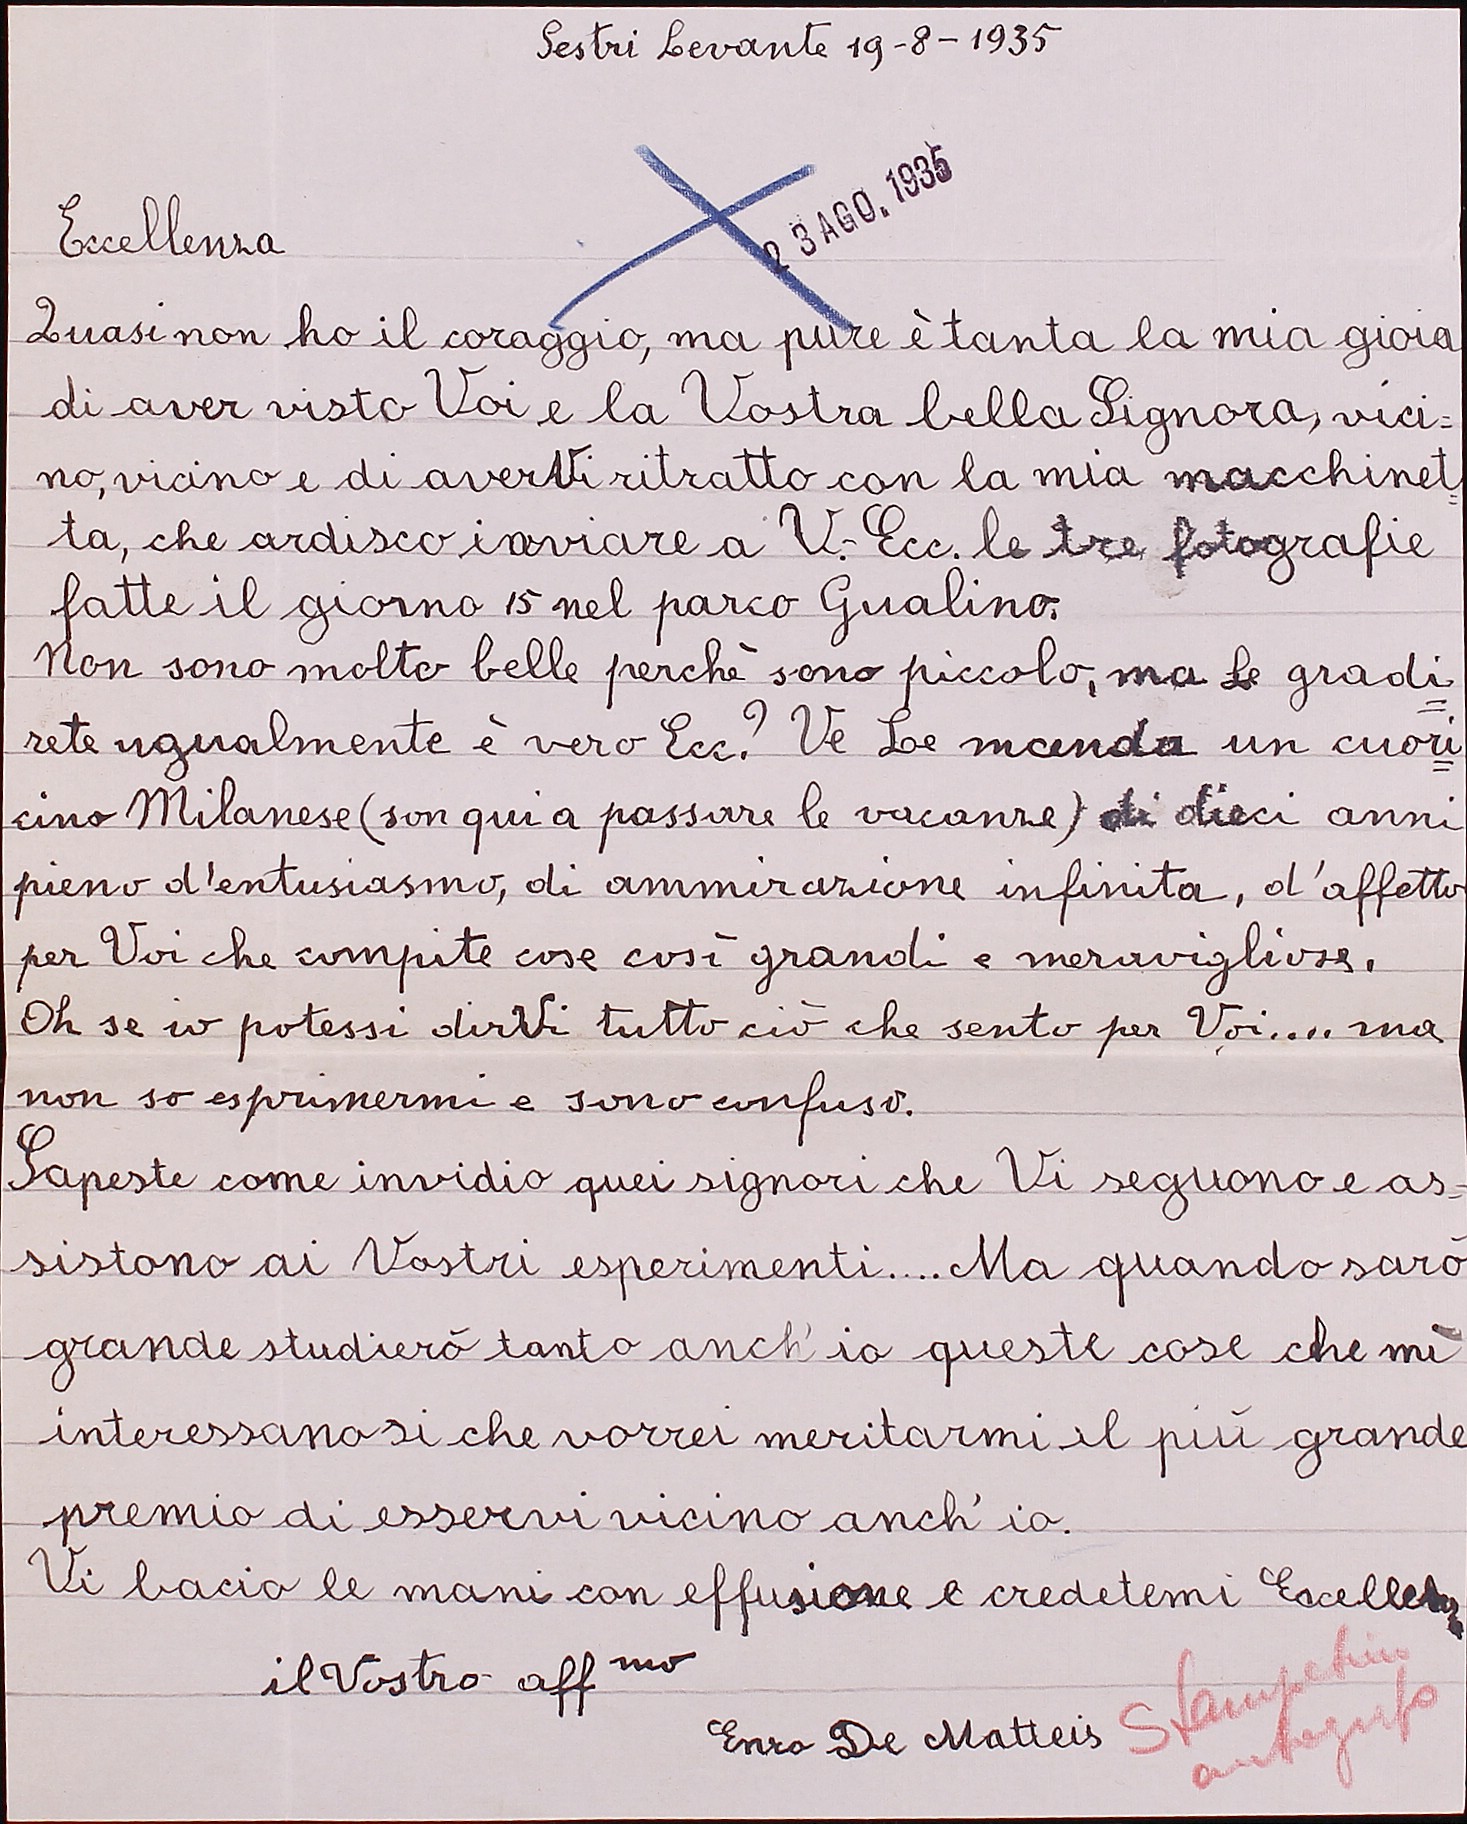 Sestri Levante 19-8-1935
23 AGO. 1935
Eccellenza
Quasi non ho il coraggio, ma pure è tanta la mia gioia
di aver visto Voi e la Vostra bella Signora, vici=
no, vicino e di averVi ritratto con la mia macchinet=
ta, che ardisco inviare a V. Ecc. le tre fotografie
fatte il giorno 15 nel parco Gualino.
Non sono molto belle perchè sono piccolo, ma Le gradi=
rete ugualmente è vero Ecc.? Ve Le manda un cuori=
cino Milanese (son qui a passare le vacanze) di dieci anni
pieno d'entusiasmo, di ammirazione infinita, d'affetto
per Voi che compite cose così grandi e meravigliose.
Oh se io potessi dirVi tutto ciò che sento per Voi.... ma
non so esprimermi e sono confuso.
Sapeste come invidio quei signori che Vi seguono e as-
sistono ai Vostri esperimenti.... Ma quando sarò
grande studierò tanto anch'io queste cose che mi
interessano si che vorrei meritarmi il più grande
premio di esservi vicino anch'io.
Vi bacio le mani con effusione e credetemi Eccellenza
il Vostro aff mo
Enzo De Matteis